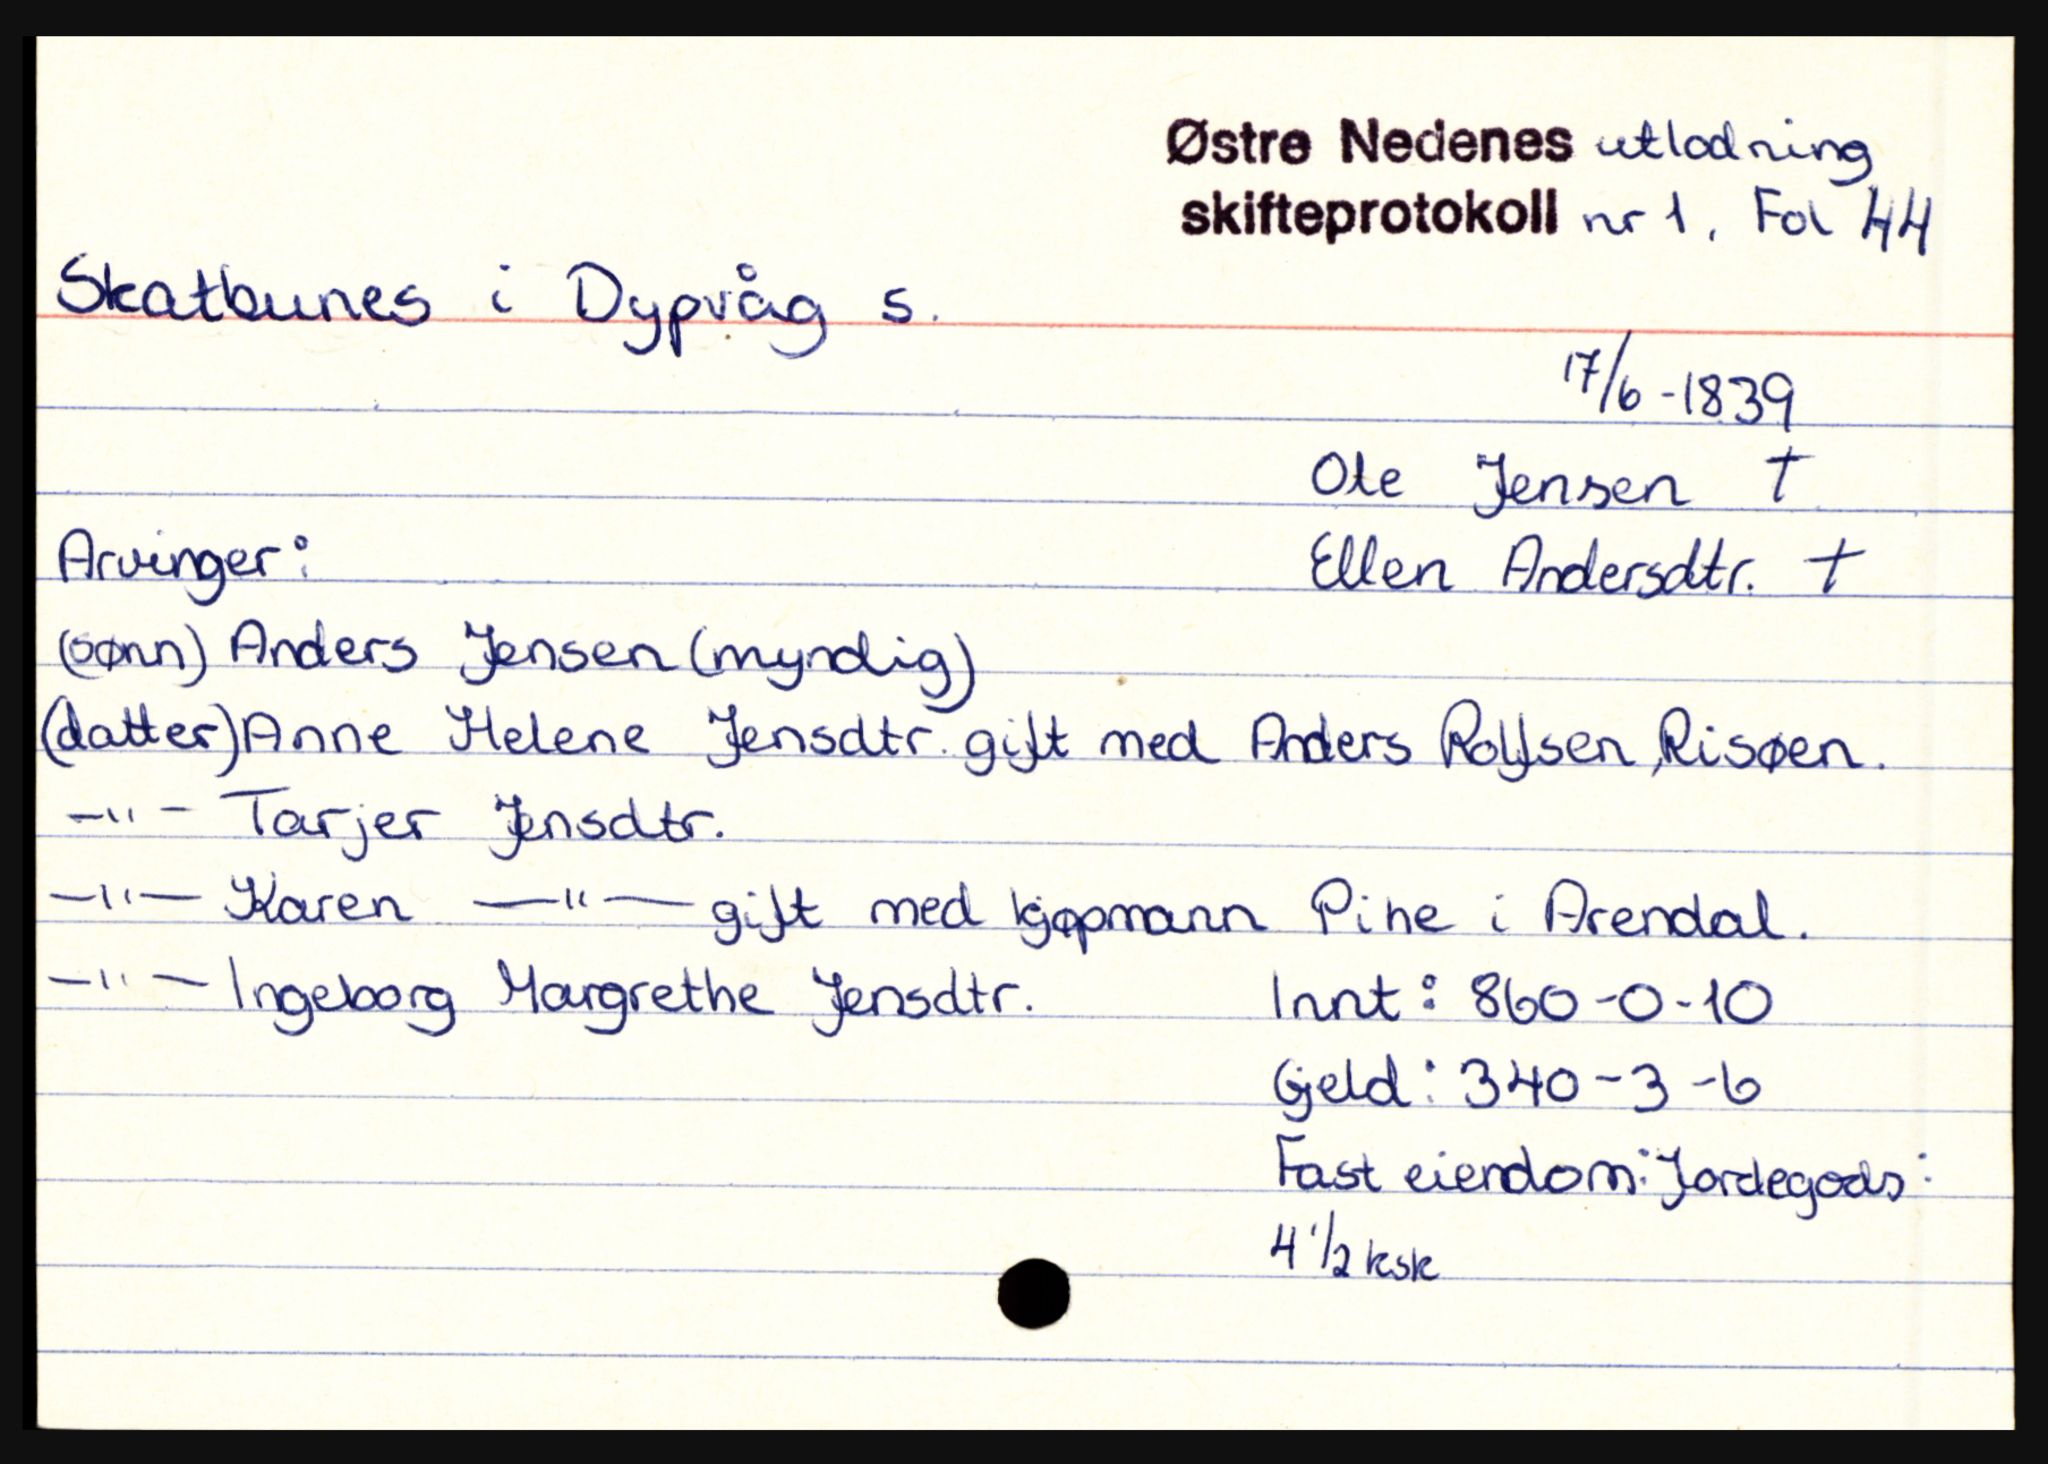 Østre Nedenes utlodning
skifteprotokoll nr 1, Fol 44
Skatbunes i Dypvåg s.
17/6 - 1839
Ole Jensen †
Ellen Andersdtr. †
Arvinger:
(sønn) Anders Jensen (myndig)
(datter) Anne Helene Jensdtr. gift med Anders Rolfsen, Risøen.
—"— Tarjer Jensdtr.
—"— Karen —"— gift med kjøpmann Pihe i Arendal.
—"— Ingeborg Margrethe Jensdtr.
Innt: 860-0-10
Gjeld: 340-3-6
Fast eiendom: Jordegods:
4 1/2 ksk